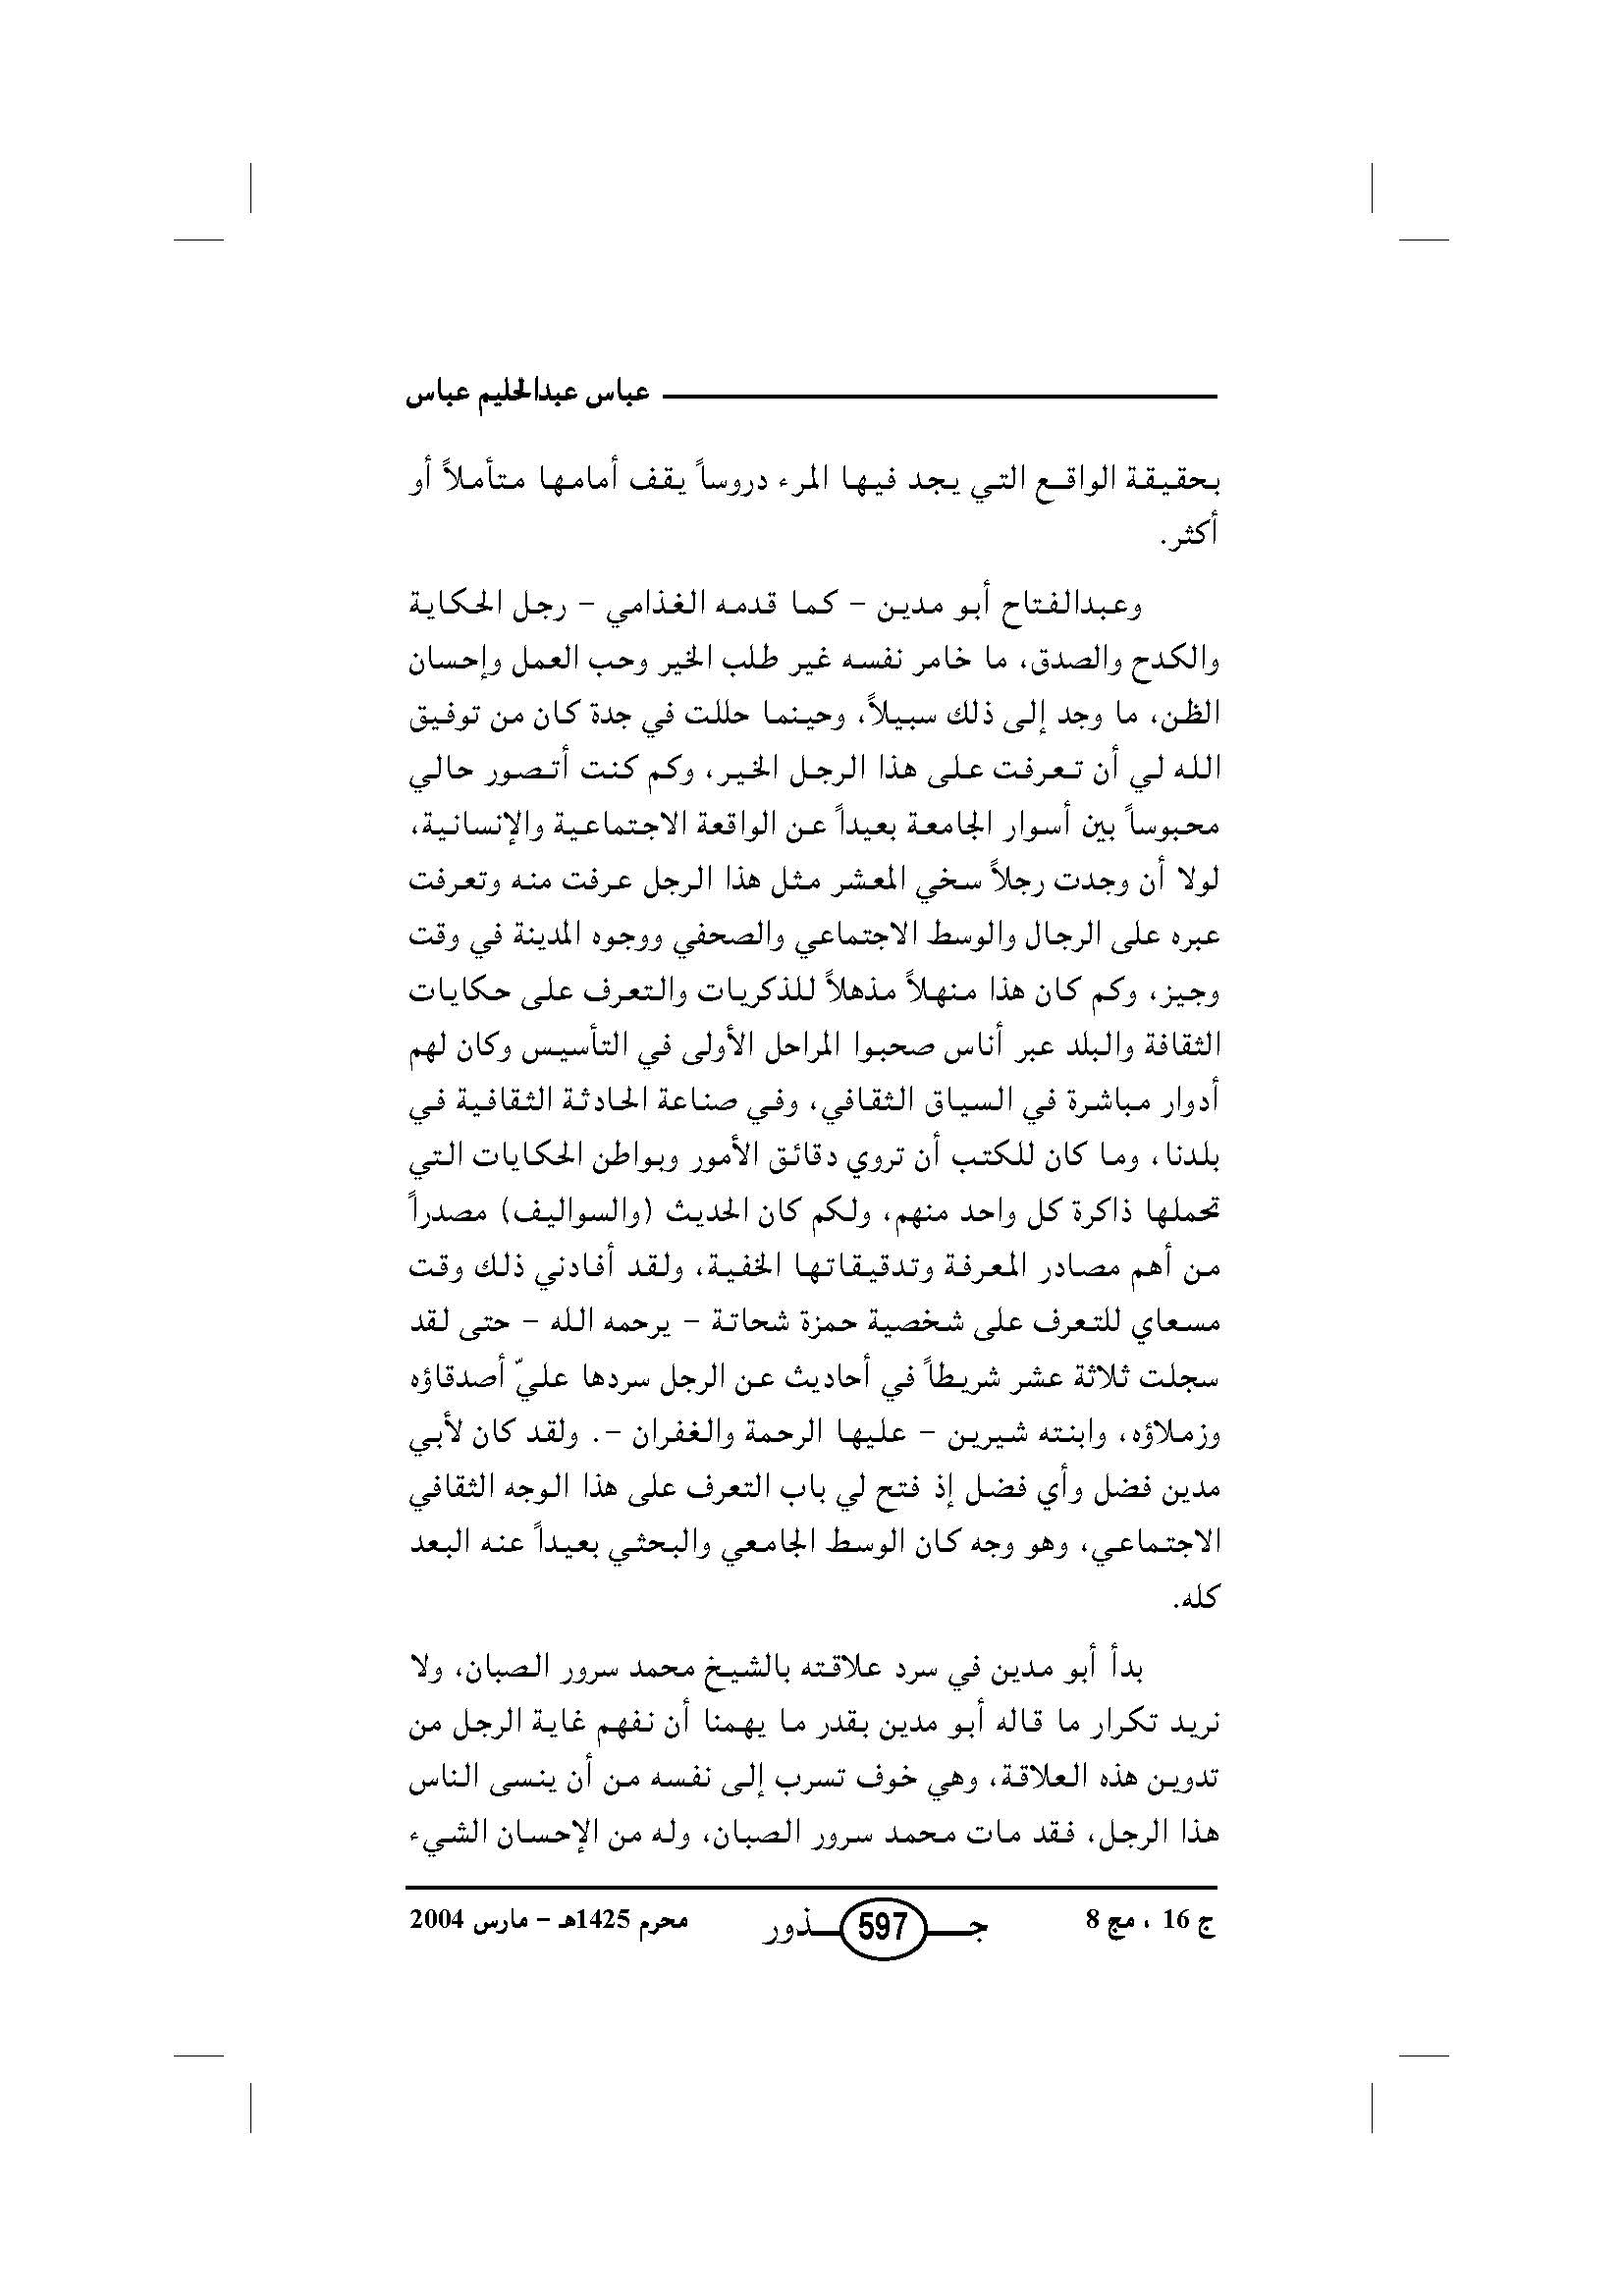 عباس عبدالحليم عباس
بحقيقة الواقع التي يجد فيها المرء دروساً يقف أمامها متأملاً أو
أكثر.
وعبدالفتاح أبو مدين – كما قدمه الغذامي – رجل الحكاية
والكدح والصدق، ما خامر نفسه غير طلب الخير وحب العمل وإحسان
الظن، ما وجد إلى ذلك سبيلاً، وحينما حللت في جدة كان من توفيق
الله لي أن تعرفت على هذا الرجل الخير، وكم كنت أتصور حالي
محبوساً بين أسوار الجامعة بعيداً عن الواقعة الاجتماعية والإنسانية،
لولا أن وجدت رجلاً سخي المعشر مثل هذا الرجل عرفت منه وتعرفت
عبره على الرجال والوسط الاجتماعي والصحفي ووجوه المدينة في وقت
وجيز، وكم كان هذا منهلاً مذهلاً للذكريات والتعرف على حكايات
الثقافة والبلد عبر أناس صحبوا المراحل الأولى في التأسيس وكان لهم
أدوار مباشرة في السياق الثقافي، وفي صناعة الحادثة الثقافية في
بلدنا، وما كان للكتب أن تروي دقائق الأمور وبواطن الحكايات التي
تحملها ذاكرة كل واحد منهم، ولكم كان الحديث (والسواليف) مصدراً
من أهم مصادر المعرفة وتدقيقاتها الخفية، ولقد أفادني ذلك وقت
مسعاي للتعرف على شخصية حمزة شحاتة – يرحمه الله – حتى لقد
سجلت ثلاثة عشر شريطاً في أحاديث عن الرجل سردها عليّ أصدقاؤه
وزملاؤه، وابنته شيرين – عليها الرحمة والغفران –. ولقد كان لأبي
مدين فضل وأي فضل إذ فتح لي باب التعرف على هذا الوجه الثقافي
الاجتماعي، وهو وجه كان الوسط الجامعي والبحثي بعيداً عنه البعد
كله.
بدأ أبو مدين في سرد علاقته بالشيخ محمد سرور الصبان، ولا
نريد تكرار ما قاله أبو مدين بقدر ما يهمنا أن نفهم غاية الرجل من
تدوين هذه العلاقة، وهي خوف تسرب إلى نفسه من أن ينسى الناس
هذا الرجل، فقد مات محمد سرور الصبان، وله من الإحسان الشيء
ج 16 ، مج 8 جـــذور 597 محرم 1425هـ – مارس 2004